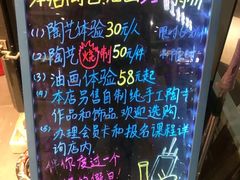 (1)陶艺体验30元/人
(2)陶艺烧制50元/件
(3)油画体验58元起
(4)本店另售自制纯手工陶艺
作品和饰品欢迎选购
(5)办理会员卡和报名课程详
询店内
伴你度过一个